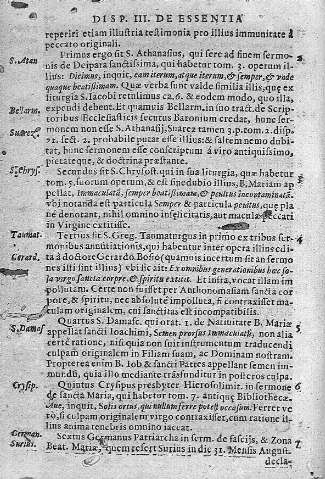 DISP. III. DE ESSENTIA
reperiri etiam illustria testimonia pro illius immunitate à
peccato originali.
S. Atan.
Primus ergo sit S. Athanasius, qui ferè ad finem sermonis
de Deipara sanctissima, qui habetur tom. 3. operum illius:
Dicimus, inquit, eam iterum, atque iterum, & semper, & undequaque
beatissimam. Quæ verba sunt valde similia illis, quæ ex
liturgia S. Iacobi retulimus ca. 6. & eodem modo, quo illa,
expendi debent. Et quamuis Bellarm. in suo tract. de Scriptoribus
Bellarm.
Ecclesiasticis secutus Baronium credat, hunc sermonem
non esse S. Athanasij: Suarez tamen 3. p. tom. 2. disp.
Suarez.
21. sect. 4. probabile putat esse illius: & saltem nemo dubitat,
hunc sermonem esse conscriptum à viro antiquissimo,
pietateque, & doctrina præstante.
S. Chrys.
Secundus sit S. Chrysost. qui in sua liturgia, quæ habetur
tom. 5. suorum operum, & est sine dubio illius, B. Mariam appellat,
immaculatā, semper beatissimam, & penitus incontaminatā.
vbi notanda est particula Semper & particula penitus, quæ plane
denotant, nihil omnino infelicitatis, aut maculæ peccati
in Virgine extitisse.
Taumat.
Tertius sit S. Greg. Taumaturgus in primo ex tribus sermonibus
annunciationis, qui habentur inter opera illius edita
Gerard.
à doctore Gerardo Bosio (quamuis incertum sit an sermones
isti sint illius) vbi sic ait: Ex omnibus generationibus hæc sola
virgo sancta corpore, & spiritu extitit. Et infra, vocat illam impollutam.
Certè non fuisset per Anthonomasiam sancta corpore,
& spiritu, nec absolutè impolluta, si contraxisset maculam
originalem, cui sanctitas est incompatibilis.
S. Damas.
Quartus S. Damasc. qui orat. 1. de Natiuitate B. Mariæ
appellat sancti Ioachimi, Semen prorsus immaculatū, non alia
certè ratione, nisi quia non fuit instrumentum traducendi
culpam originalem in Filiam suam, ac Dominam nostram.
Propterea enim B. Iob & sancti Patres appellant semen immundū,
quia illo mediante trāsfunditur in posteros culpa.
Crysip.
Quintus Crysipus presbyter Hierosolimit. in sermone
de sancta Maria, qui habetur tom. 7. antiquæ Bibliothecæ.
Aue, inquit, Solis ortus, qui nullum ferre potest occasum. Ferret vero,
si culpam originalem virgo contraxisset, cum ratione illius
anima tenebris omnino iaceat.
German.
Sextus Germanus Patriarcha in serm. de fascijs, & Zona
Surius.
Beat. Mariæ, quem refert Surius in die 31. Mensis August.
decla-